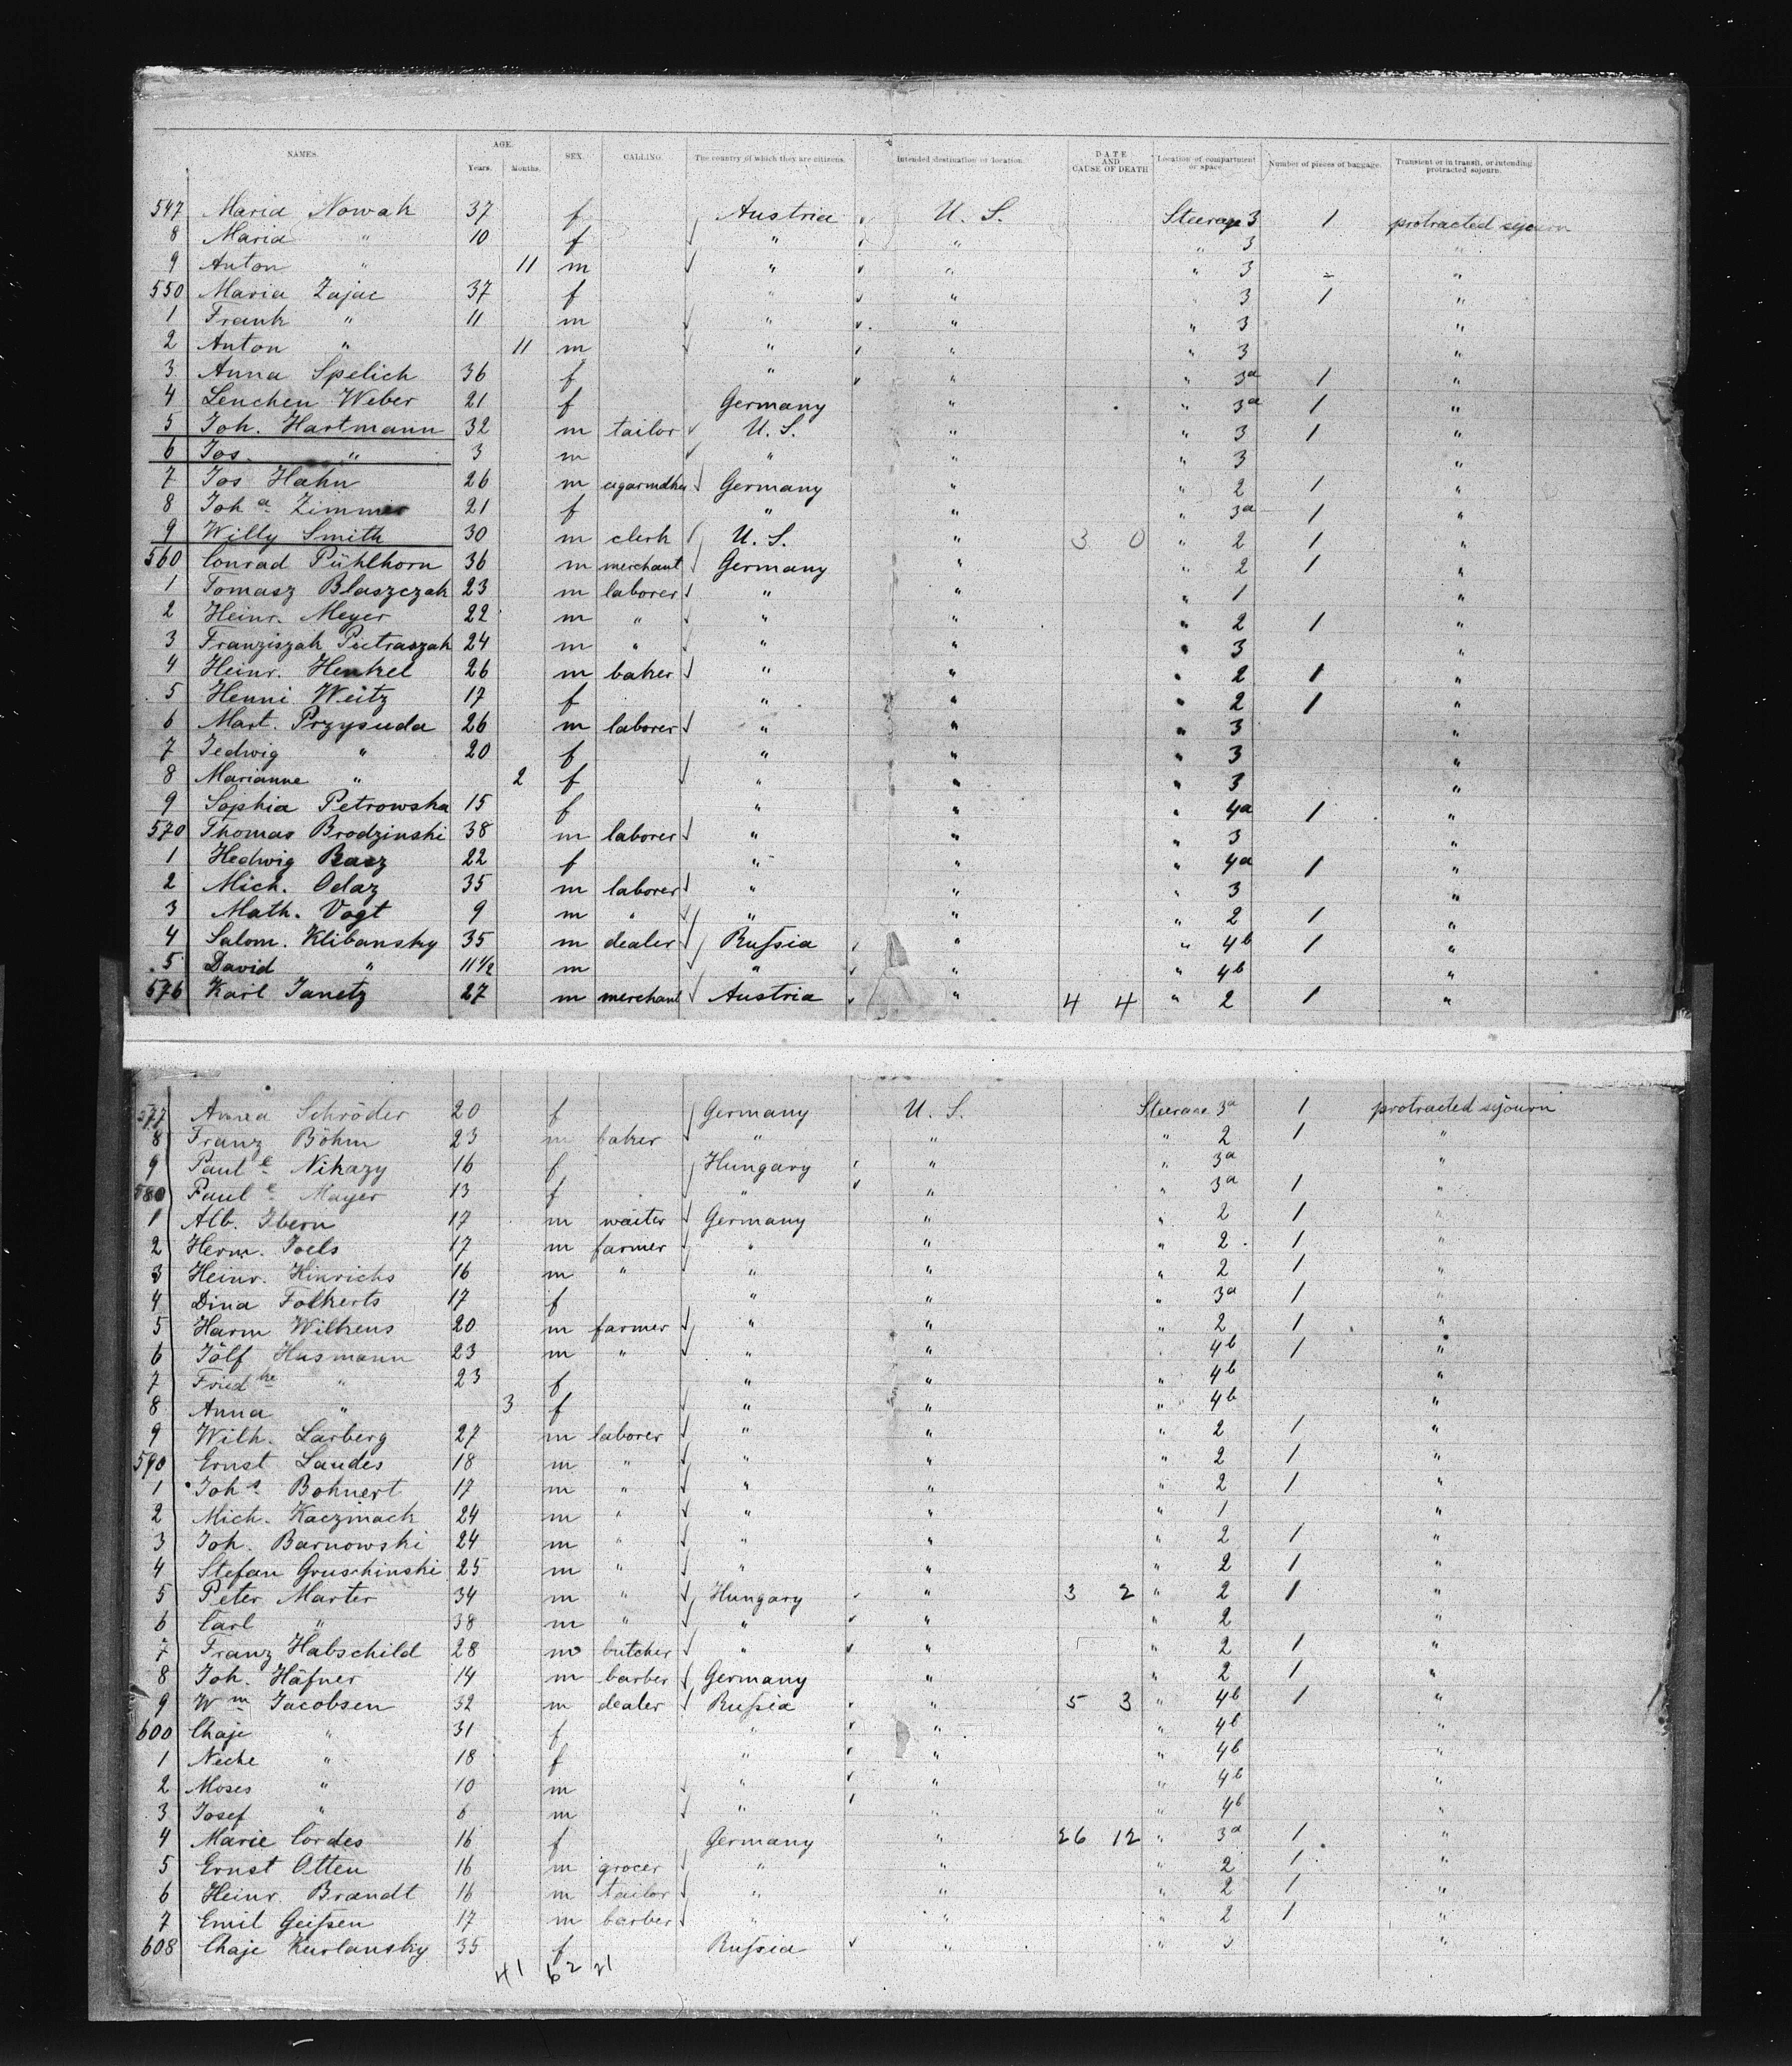 NAMES. AGE. Years. Months. SEX. CALLING. The country of which they are citizens. Intended destination or location. DATE AND CAUSE OF DEATH Location of compartment or space. Number of pieces of baggage. Transient or in transit, or intending protracted sojourn.
547 Maria Nowak 37 f Austria U. S. Steerage 3 1 protracted sejourn
8 Maria " 10 f " " " 3 "
9 Anton " 11 m " " " 3 "
550 Maria Zajac 37 f " " 3 1 "
1 Frank " 11 m " " " 3 "
2 Anton " 11 m " " " 3 "
3 Anna Spelich 36 f " " " 3a 1 "
4 Lenchen Weber 21 f Germany " " 3a 1 "
5 Joh. Hartmann 32 m tailor U. S. " " 3 1 "
6 Jos. " 3 m " " " 3 "
7 Jos Hahn 26 m Germany " " 2 1 "
8 Joh a Zimmer 21 f " " " 3a 1 "
9 Willy Smith 30 m clerk U. S. " 3 0 " 2 1 "
560 Conrad Pühlhorn 36 m merchant Germany " " 2 1 "
1 Tomasz Blaszczak 23 m laborer " " " 1 "
2 Heinr. Meyer 22 m " " " " 2 1 "
3 Franziszak Pietraszak 24 m " " " " 3 "
4 Heinr. Henkel 26 m baker " " " 2 1 "
5 Henni Weitz 17 f " " " 2 1 "
6 Mart. Przysuda 26 m laborer " " " 3 "
7 Jedwig " 20 f " " " 3 "
8 Marianne " 2 f " " " 3 "
9 Sophia Petrowska 15 f " " " 4a 1 "
570 Thomas Brodzinski 38 m laborer " " " 3 "
1 Hedwig Basz 22 f " " " 4a 1 "
2 Mich. Odaz 35 m laborer " " " 3 "
3 Math. Vogt 9 m " " " " 2 1 "
4 Salom. Klibansky 35 m dealer Russia " " 4b 1 "
5 David " 11½ m " " " 4b "
576 Karl Janetz 27 m merchant Austria " 4 4 " 2 1 "
577 Anna Schröder 20 f Germany U. S. Steerage 3a 1 protracted sejourn
8 Franz Böhm 23 m baker " " " 2 1 "
9 Paul e Nikazy 16 f Hungary " " 3a "
580 Paul e Mayer 13 f " " " 3a 1 "
1 Alb. Ibern 17 m waiter Germany " " 2 1 "
2 Herm. Joels 17 m farmer " " " 2 1 "
3 Heinr. Hinrichs 16 m " " " " 2 1 "
4 Dina Folkerts 17 f " " " 3a 1 "
5 Harm Wilkens 20 m farmer " " " 2 1 "
6 Jölf Husmann 23 m " " " " 4b 1 "
7 Fried ke " 23 f " " " 4b "
8 Anna " 3 f " " " 4b "
9 Wilh. Larberg 27 m laborer " " " 2 1 "
590 Ernst Landes 18 m " " " " 2 1 "
1 Joh s Bohnert 17 m " " " " 2 1 "
2 Mich. Kaczmack 24 m " " " " 1 "
3 Joh. Barnowski 24 m " " " " 2 1 "
4 Stefan Gruschinski 25 m " " " " 2 1 "
5 Peter Marter 34 m " Hungary " 3 2 " 2 1 "
6 Carl " 38 m " " " " 2 "
7 Franz Habschild 28 m butcher " " " 2 1 "
8 Joh. Häfner 14 m barber Germany " " 2 1 "
9 Wm Jacobsen 32 m dealer Russia " 5 3 " 4b 1 "
600 Chaje " 31 f " " " 4b "
1 Neche " 18 f " " " 4b "
2 Moses " 10 m " " " 4b "
3 Josef " 6 m " " " 4b "
4 Marie Cordes 16 f Germany " 26 12 " 3a 1 "
5 Ernst Otten 16 m grocer " " " 2 1 "
6 Heinr. Brandt 16 m tailor " " " 2 1 "
7 Emil Geissen 17 m barber " " " 2 1 "
608 Chaje Kurlansky 35 f Russia " " 3 "
41 62 21